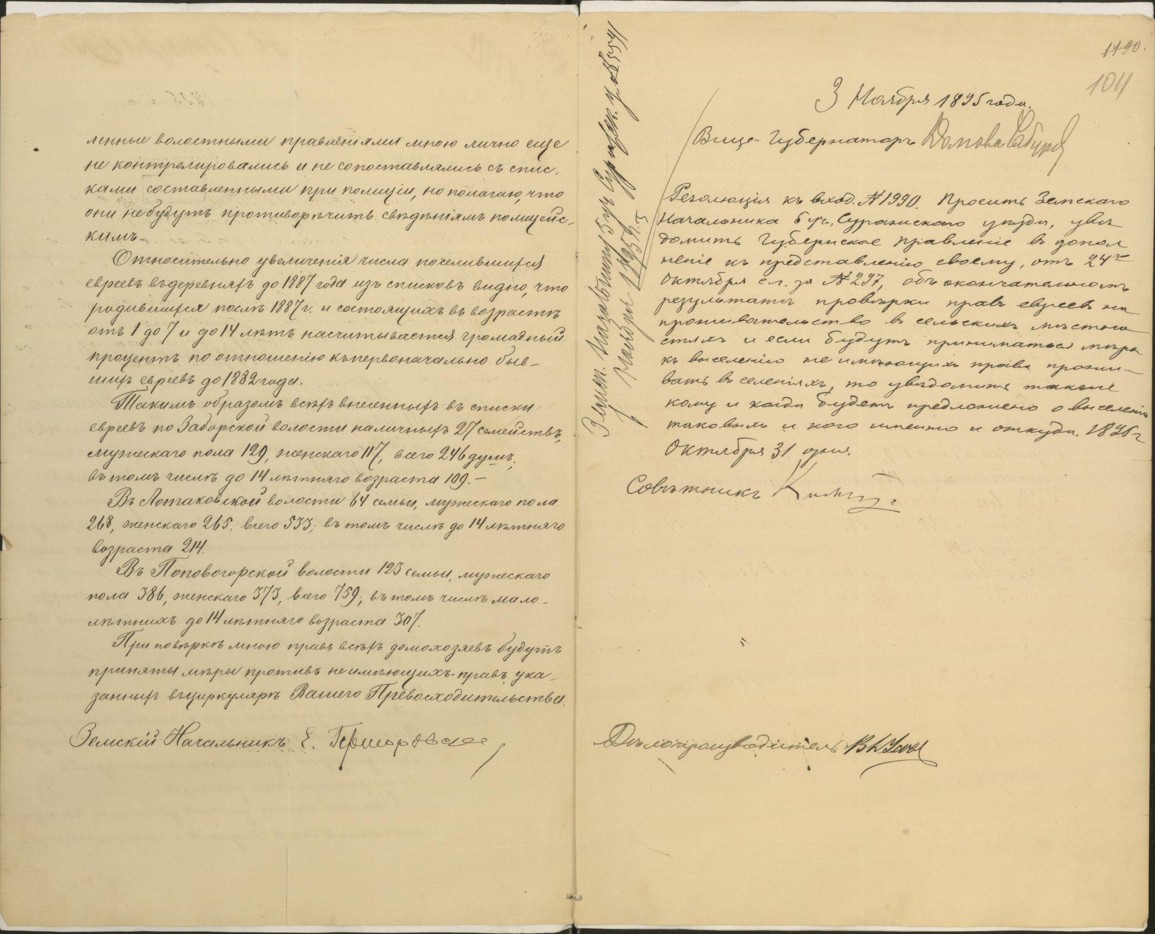 ленные волостными правленіями мною лично еще
не контролировались и не сопоставлялись съ спис-
ками составленными при полиціи, но полагаю, что
они не будутъ противорѣчить свѣдѣніямъ полицейс-
кимъ.
Относительно увеличенія числа поселившихся
евреевъ въ деревняхъ до 1887 года изъ списковъ видно, что
родившихся послѣ 1887 г. и состоящихъ въ возрастѣ
отъ 1 до 7 и до 14 лѣтъ насчитывается громадный
процентъ по отношенію къ первоначально быв-
шихъ евреевъ до 1882 года.
Такимъ образомъ всѣхъ внесенныхъ въ списки
евреевъ по Заборской волости наличныхъ 27 семействъ,
мужескаго пола 129, женскаго 117, всего 246 душъ;
въ томъ числѣ до 14 лѣтняго возраста 109.–
Въ Лотаковской волости 84 семьи, мужескаго пола
268, женскаго 265. всего 533; въ томъ числѣ до 14 лѣтняго
возраста 214.
Въ Поповогорской волости 123 семьи, мужескаго
пола 386, женскаго 373, всего 759, въ томъ числѣ мало-
лѣтнихъ до 14 лѣтняго возраста 307.
При повѣркѣ мною правъ всѣхъ домохозяевъ будутъ
приняты мѣры противъ неимѣющихъ правъ, ука-
занныхъ въ циркулярѣ Вашего Превосходительства.
Земскій Начальникъ Е.
1190.
104
3 Ноября 1895 года.
Вице-Губернаторъ
Земск. Начальнику 5 уч. Сураж. у. № 5541
Ноября 1895 г.
Резолюція къ вход. № 1990. Просить Земскаго
Начальника 5 уч. Суражскаго уѣзда, увѣ
домить Губернское Правленіе въ допол
неніе къ представленію своему, отъ 24го
Октября с.г. за № 297, объ окончательномъ
результатѣ провѣрки правъ евреевъ на
проживательство въ сельскихъ мѣстно
стяхъ и если будутъ приниматься мѣры
къ выселенію не имѣющихъ права прожи-
вать въ селеніяхъ, то увѣдомить также
кому и когда будетъ предложено о выселеніи
таковымъ и кого именно и откуда. 1895 г.
Октября 31 дня.
Совѣтникъ
Дѣлопроизводитель